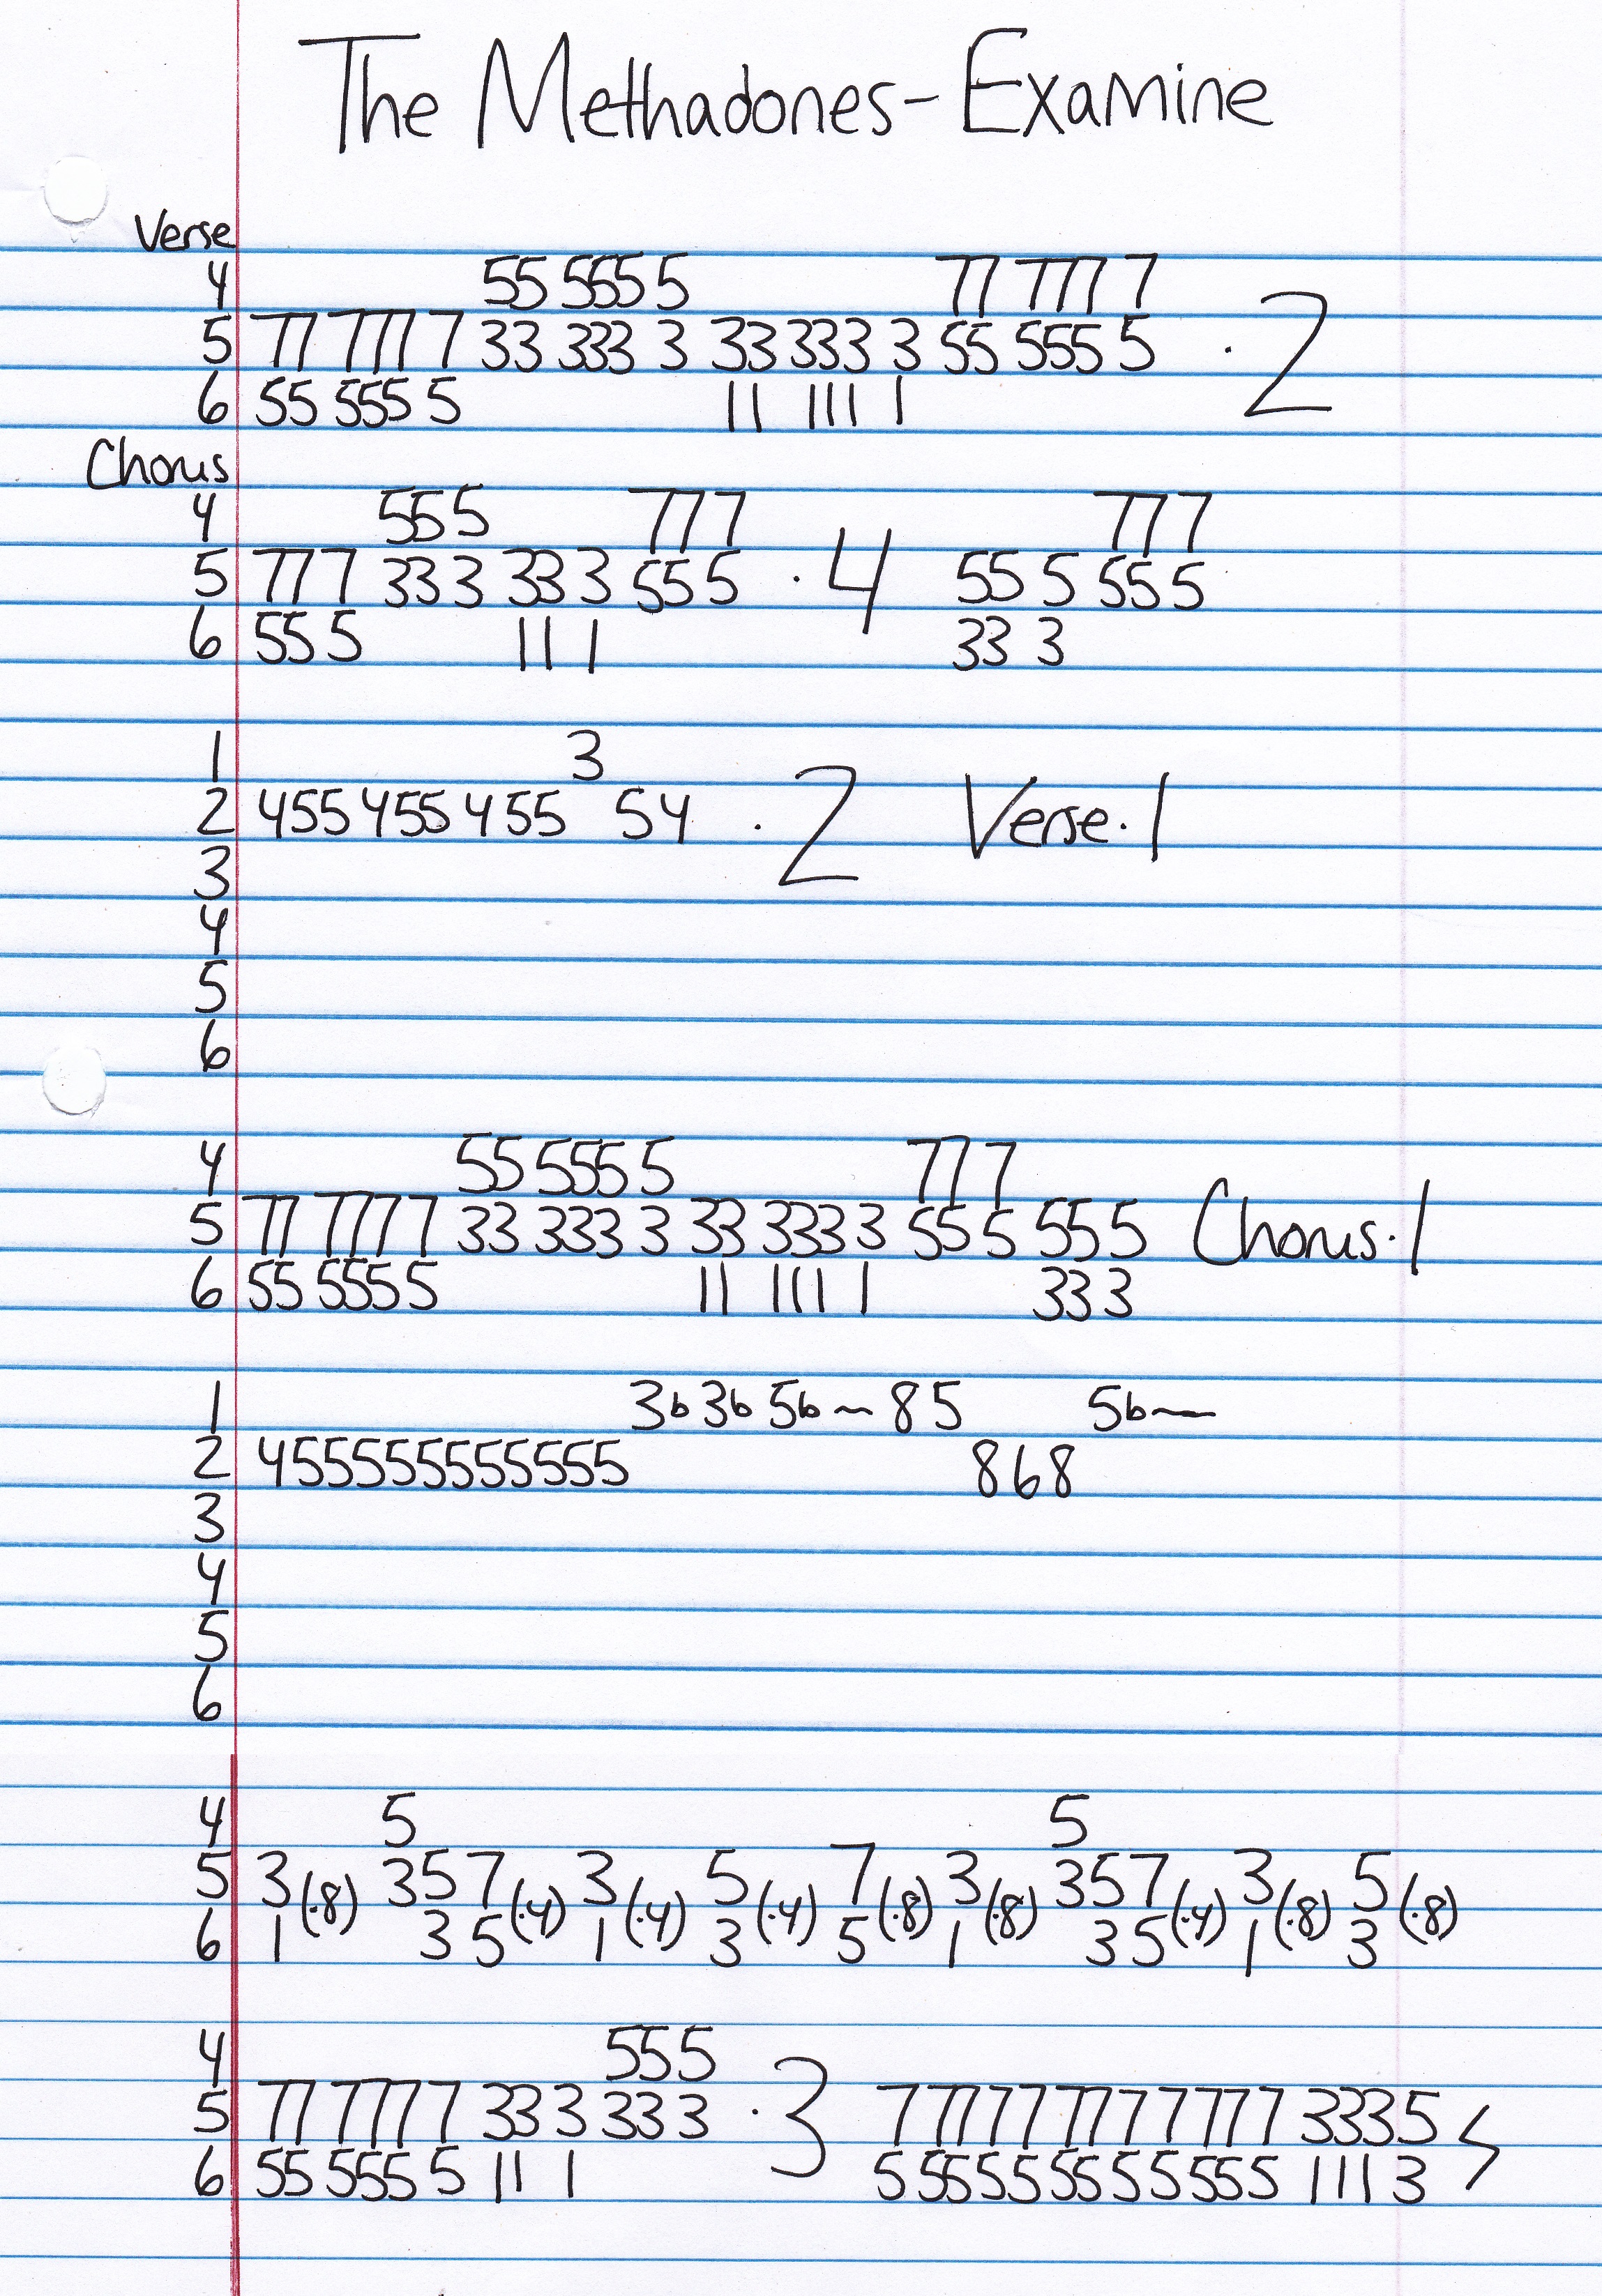 The Methadones - Examine
Verse
4 55 555 5 77 777 7
5 77 777 7 33 333 3 33 333 3 55 555 5 · 2
6 55 555 5 11 111 1
Chorus
4 55 5 77 7 77 7
5 77 7 33 3 33 3 55 5 · 4 55 5 55 5
6 55 5 11 1 33 3
1 3
2 455 455 455 54 · 2 Verse · 1
3
4
5
6
4 55 555 5 77 7
5 77 777 7 33 333 3 33 333 3 55 5 55 5 Chorus · 1
6 55 555 5 11 111 1 33 3
1 3b 3b 5b~ 8 5 5b~
2 455555555555 868
3
4
5
6
4 5 5
5 3 (·8) 3 5 7 (·4) 3 (·4) 5 (·4) 7 (·8) 3 (·8) 3 5 7 (·4) 3 (·8) 5 (·8)
6 1 3 5 1 3 5 1 3 5 1 3
4 55 5
5 77 777 7 33 3 33 3 · 3 7 777 777 7 777 3335
6 55 555 5 11 1 5 555 555 5 555 1113